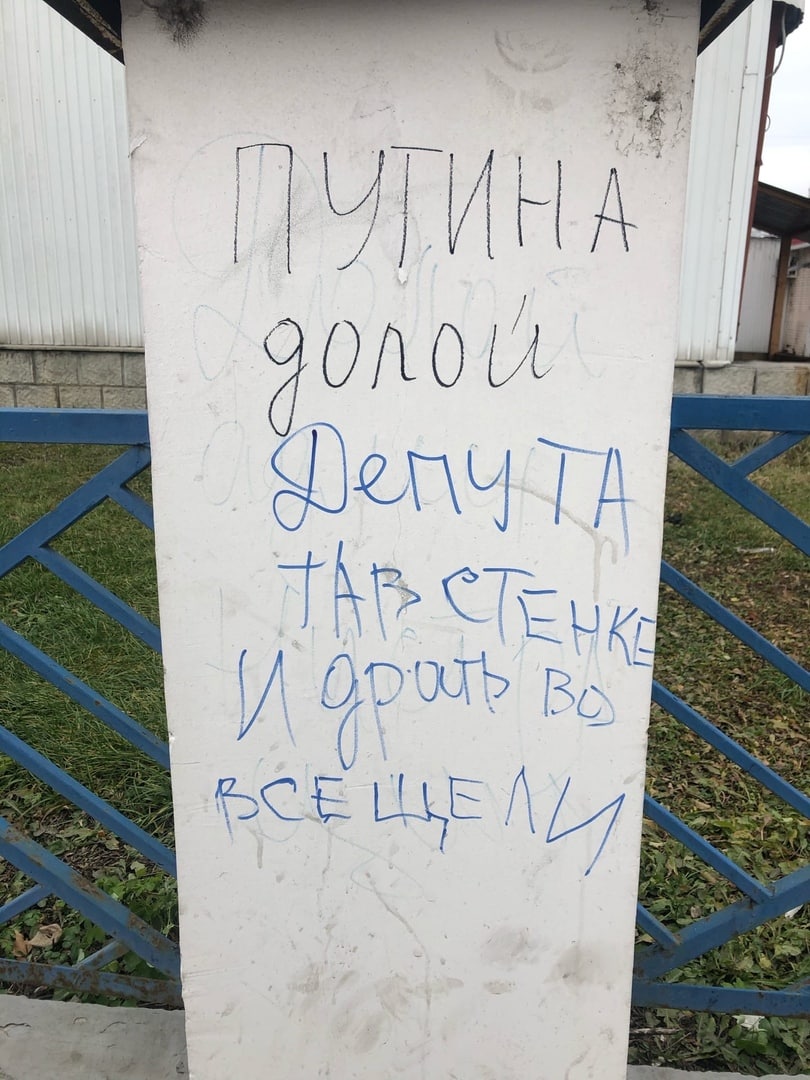 ПУТИНА
долой
Депута
тАВ СТЕНКЕ
И драть во
ВСЕ ЩЕЛИ